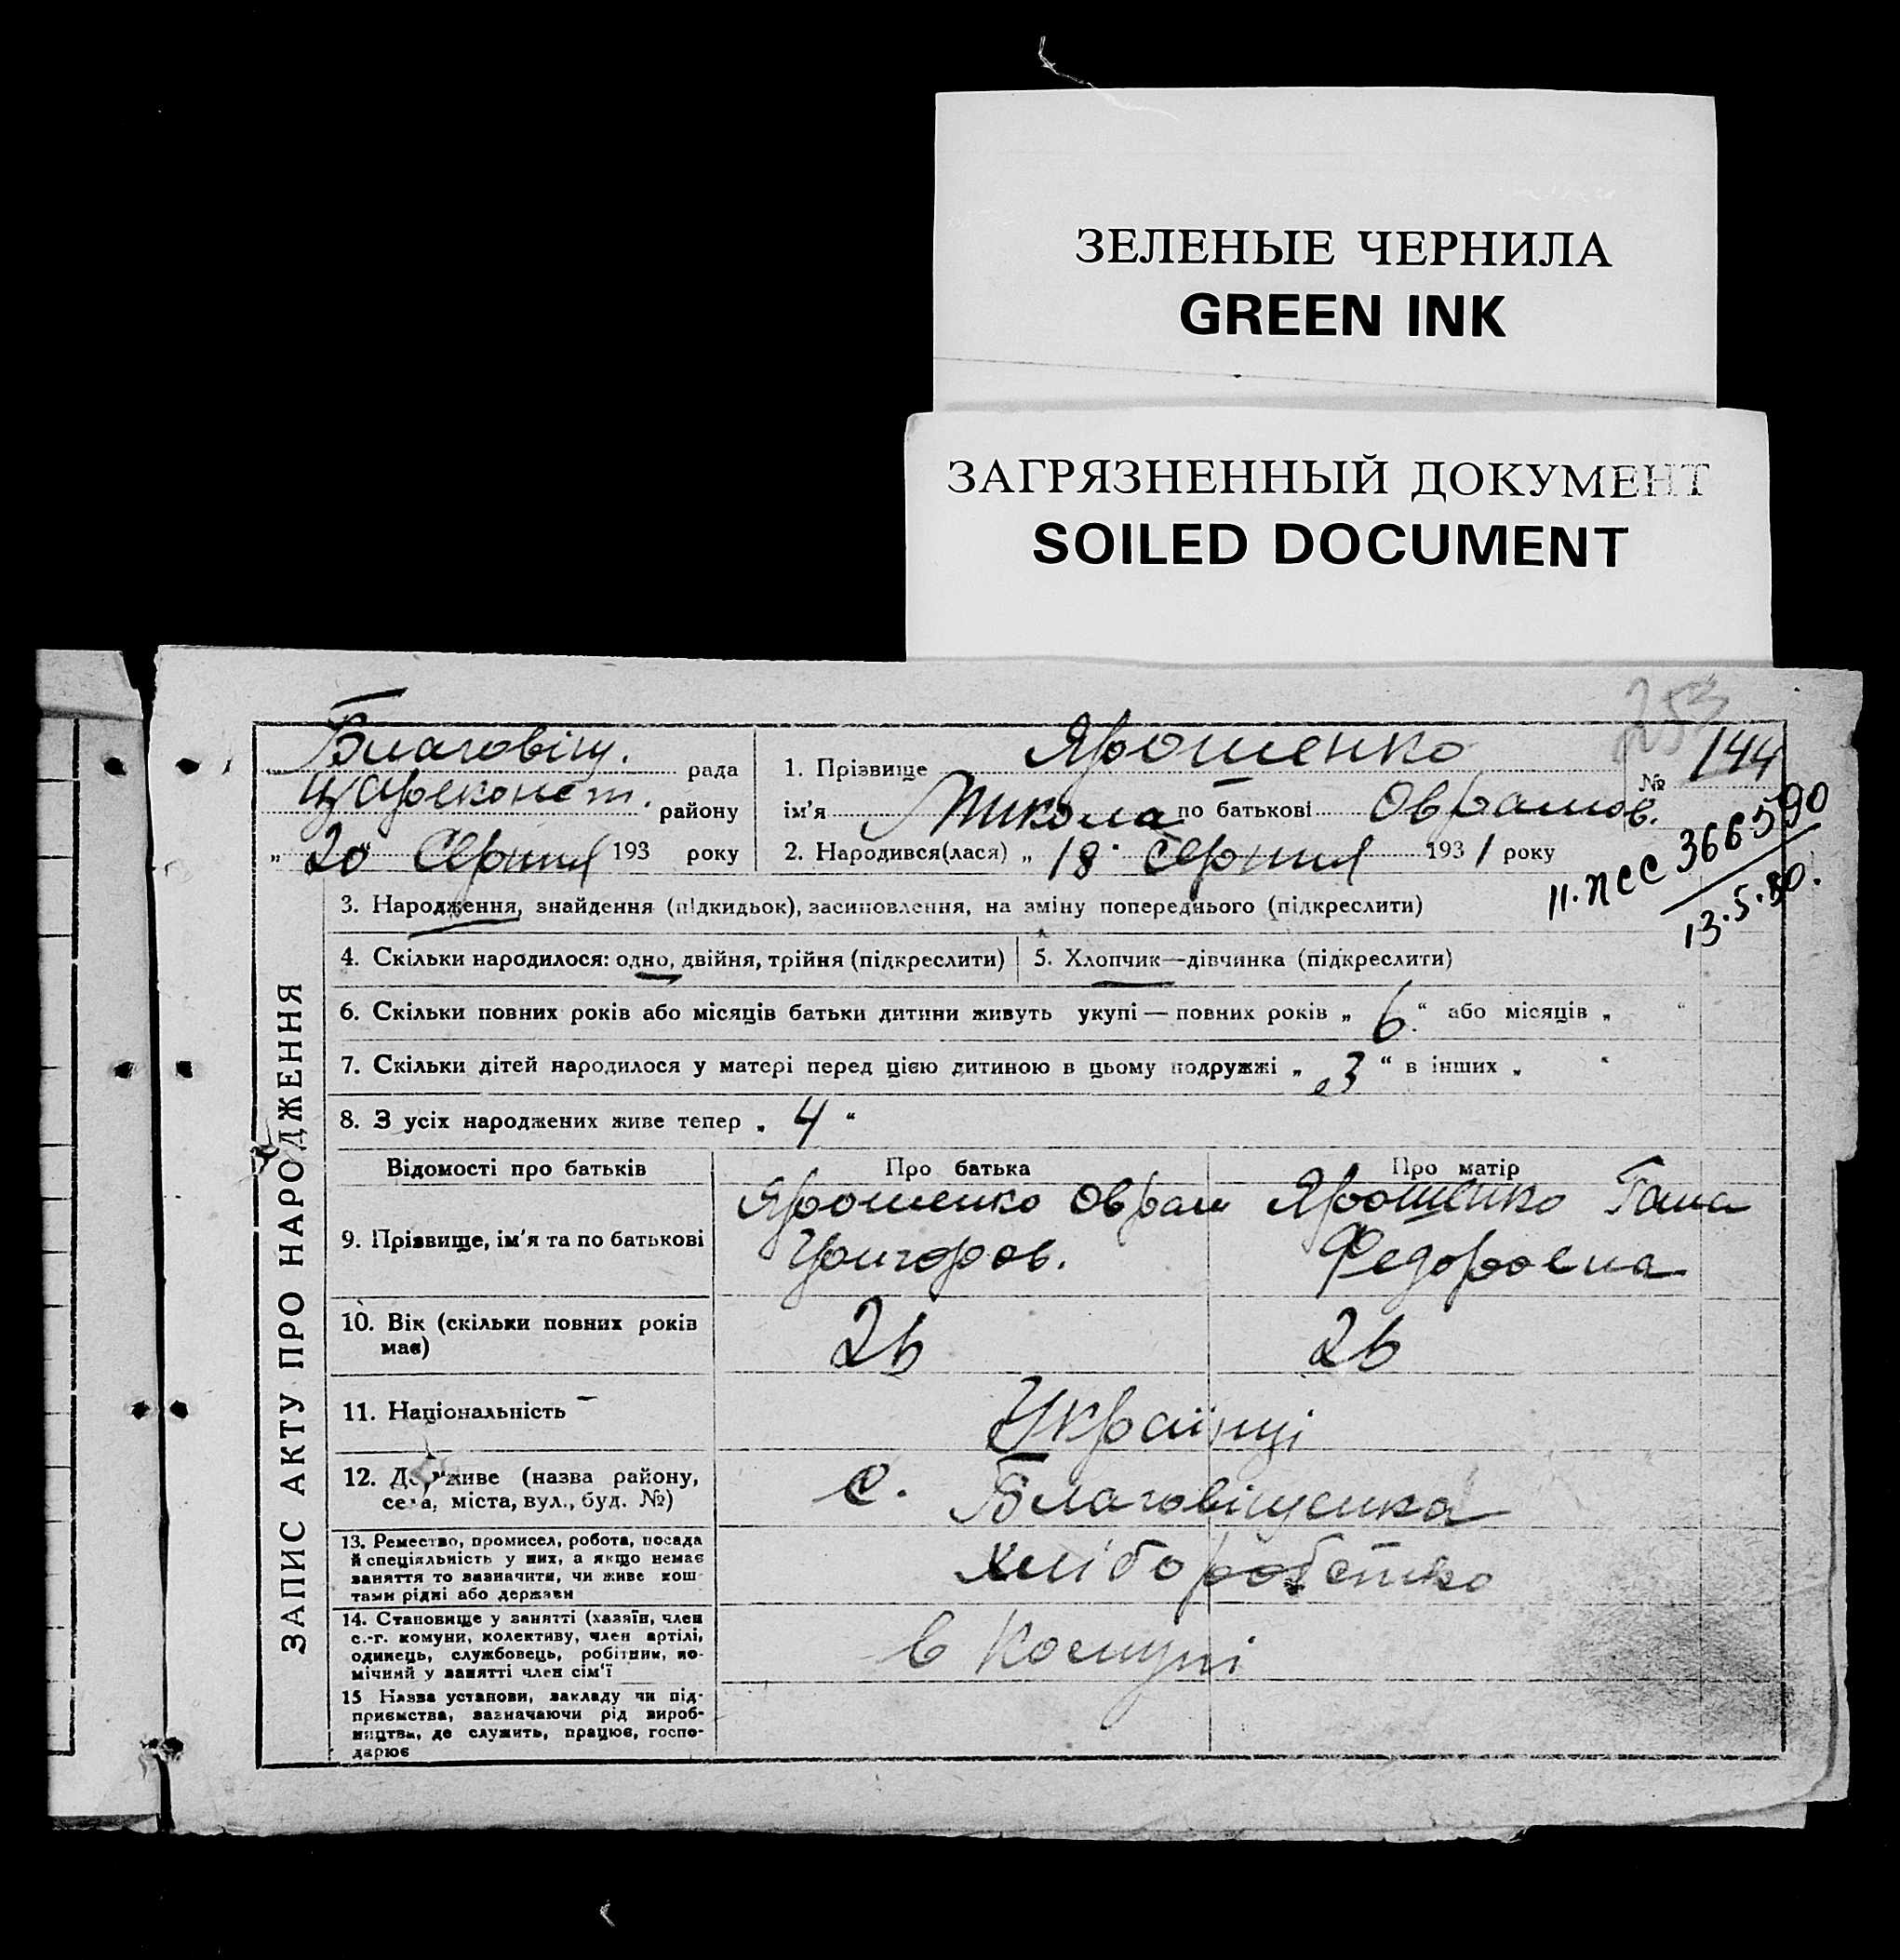 ЗЕЛЕНЫЕ ЧЕРНИЛА
GREEN INK
ЗАГРЯЗНЕННЫЙ ДОКУМЕНТ
SOILED DOCUMENT
253
Благовіщ. рада
Цареконст. району
„ 20 “ Серпня 193 року
1. Прізвище Ярошенко
№ 144
ім'я Микола по батькові Оврамов.
2. Народився(лася) „ 18 “ Серпня 1931 року
11. ПСС 366590
13.5.80.
ЗАПИС АКТУ ПРО НАРОДЖЕННЯ
3. Народження, знайдення (підкидьок), засиновлення, на зміну попереднього (підкреслити)
4. Скільки народилося: одно, двійня, трійня (підкреслити)
5. Хлопчик—дівчинка (підкреслити)
6. Скільки повних років або місяців батьки дитини живуть укупі — повних років „ 6 “ або місяців „ “
7. Скільки дітей народилося у матері перед цією дитиною в цьому подружжі „ 3 “ в інших „ “
8. З усіх народжених живе тепер „ 4 “
Відомості про батьків Про батька Про матір
9. Прізвище, ім'я та по батькові
Ярошенко Оврам
Григоров.
Ярошенко Ганна
Федоровна
10. Вік (скільки повних років
має)
26 26
11. Національність
Українці
12. Де живе (назва району,
села, міста, вул., буд. №)
с. Благовіщенка
13. Ремество, промисел, робота, посада
й спеціяльність у них, а якщо немає
заняття то зазначити, чи живе кош-
тами рідні або держави
хліборобство
14. Становище у занятті (хазяїн, член
с.-г. комуни, колективу, член артілі,
одинець, службовець, робітник, по-
мічний у занятті член сім'ї
в Комуні
15 Назва установи, закладу чи під-
приємства, зазначаючи рід вироб-
ництва, де служить, працює, госпо-
дарює